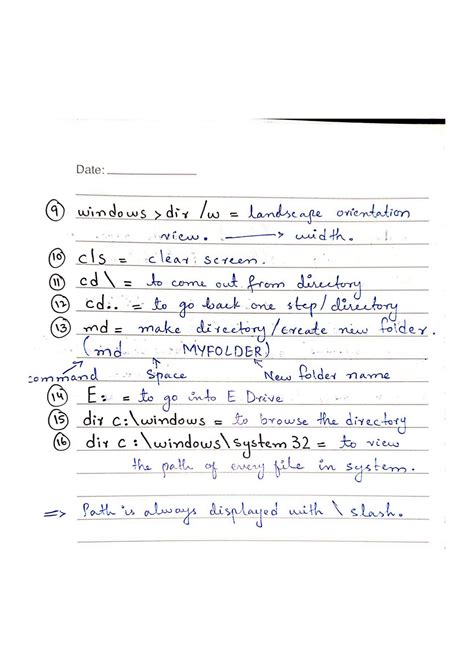 Date:
⑨ windows > dir /w = landscape orientation
view. ⟶ width.
⑩ cls = clear screen.
⑪ cd\ = to come out from directory
⑫ cd.. = to go back one step/directory
⑬ md = make directory/create new folder.
(md MYFOLDER)
command Space New folder name
⑭ E: = to go into E Drive
⑮ dir c:\windows = to browse the directory
⑯ dir c:\windows\system 32 = to view
the path of every file in system.
=> Path is always displayed with \ slash.